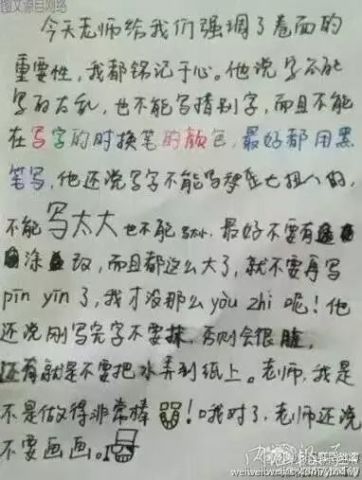 图文源自网络
今天老师给我们强调了卷面的
重要性，我都铭记于心。他说字不能
写的太乱，也不能写猜别字，而且不能
在写字的时换笔的颜色，最好都用黑
笔写，他还说写字不能写歪七扭八的，
不能写太大也不能写太小，最好不要有
涂改，而且都这么大了，就不要再写
pīn yīn了，我才没那么yòu zhi呢！他
还说刚写完字不要抹，否则会很脏，
还有就是不要把水弄到纸上。老师，我是
不是做得非常棒！哦对了，老师还说
不要画画。